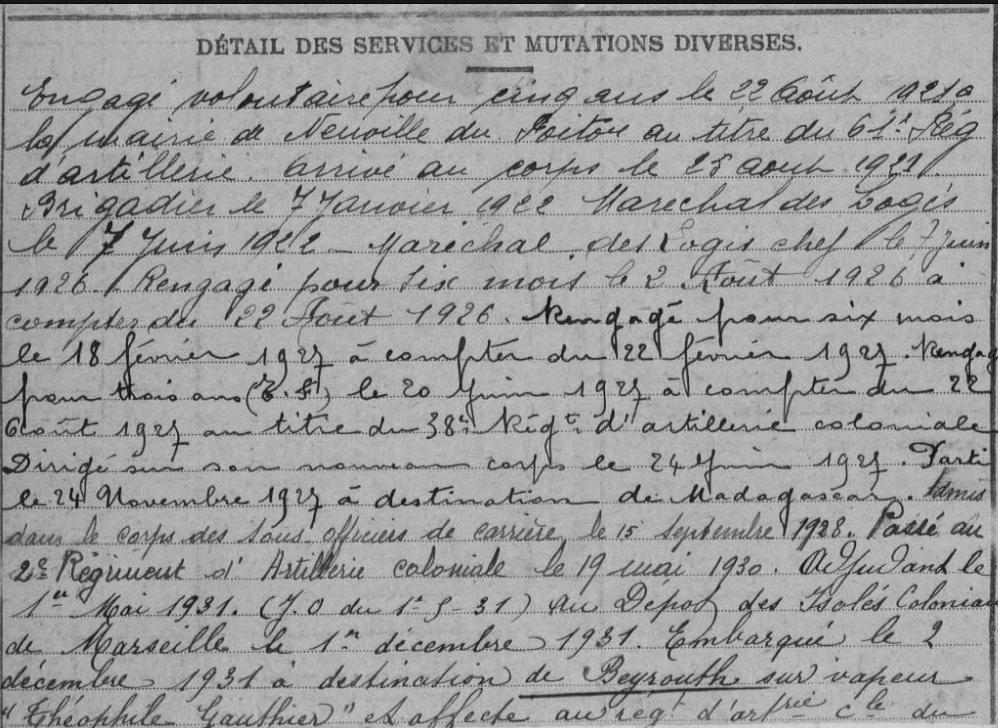 DÉTAIL DES SERVICES ET MUTATIONS DIVERSES.
Engagé volontaire pour cinq ans le 22 Août 1921 à
la mairie de Neuville du Poitou au titre du 61e Rég
d'artillerie. arrivé au corps le 25 aout 1921.
Brigadier le 7 Janvier 1922 Marechal des Logis
le 7 Juin 1922 - Maréchal des Logis chef le 7 juin
1926. Rengagé pour six mois le 2 Août 1926 à
compter du 22 Août 1926. Rengagé pour six mois
le 18 février 1927 à compter du 22 février 1927. Rengag
pour trois ans le 20 Juin 1927 à compter du 22
Août 1927 au titre du 38e Régt d'artillerie coloniale
Dirigé sur son nouveau corps le 24 Juin 1927. Parti
le 24 Novembre 1927 à destination de Madagascar. Admis
dans le corps des sous officiers de carrière le 15 septembre 1928. Passé au
2e Régiment d'Artillerie coloniale le 19 mai 1930. Adjudant le
1er Mai 1931. (J.O du 1-5-31) Au Depot des Isolés Coloniau
de Marseille le 1er décembre 1931. Embarqué le 2
décembre 1931 à destination de Beyrouth sur vapeur
"Théophile Gauthier" et affecté au rég d'artrie cle du